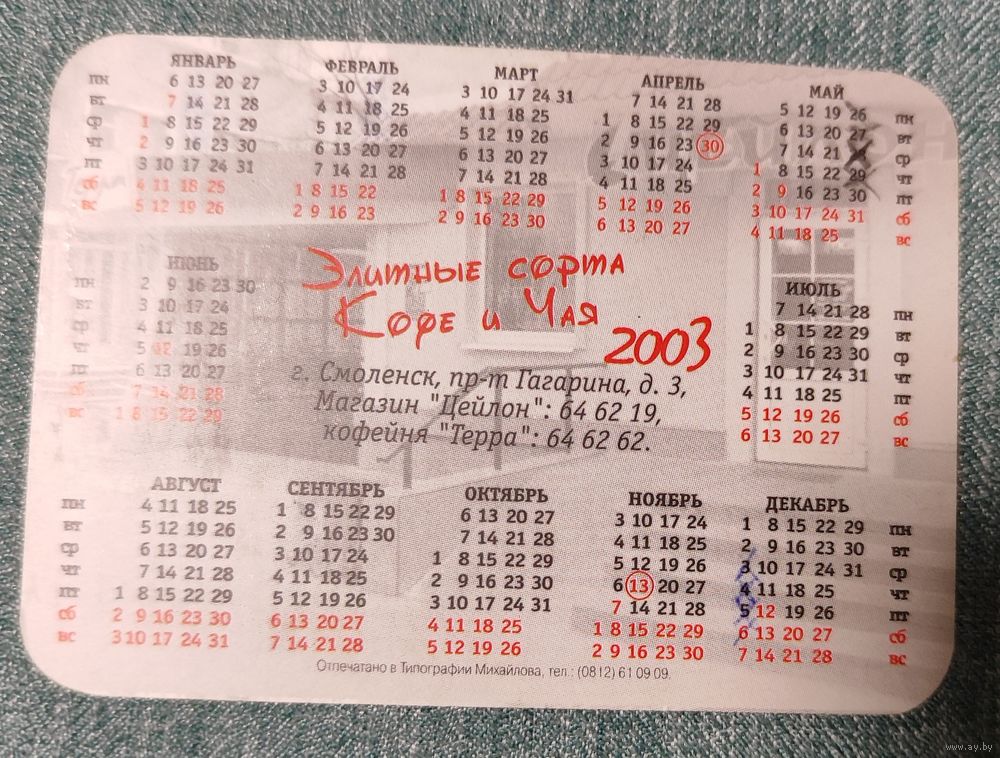 ЯНВАРЬ ФЕВРАЛЬ МАРТ АПРЕЛЬ МАЙ
пн 6 13 20 27 3 10 17 24 3 10 17 24 31 7 14 21 28 5 12 19 26 пн
вт 7 14 21 28 4 11 18 25 4 11 18 25 1 8 15 22 29 6 13 20 27 вт
ср 1 8 15 22 29 5 12 19 26 5 12 19 26 2 9 16 23 30 7 14 21 ср
чт 2 9 16 23 30 6 13 20 27 6 13 20 27 3 10 17 24 1 8 15 22 29 чт
пт 3 10 17 24 31 7 14 21 28 7 14 21 28 4 11 18 25 2 9 16 23 30 пт
сб 4 11 18 25 1 8 15 22 1 8 15 22 29 5 12 19 26 3 10 17 24 31 сб
вс 5 12 19 26 2 9 16 23 2 9 16 23 30 6 13 20 27 4 11 18 25 вс
ИЮНЬ
пн 2 9 16 23 30
вт 3 10 17 24
ср 4 11 18 25
чт 5 12 19 26
пт 6 13 20 27
сб 7 14 21 28
вс 1 8 15 22 29
Элитные сорта
Кофе и Чая
2003
г. Смоленск, пр-т Гагарина, д. 3,
Магазин "Цейлон": 64 62 19,
кофейня "Терра": 64 62 62.
ИЮЛЬ
7 14 21 28 пн
1 8 15 22 29 вт
2 9 16 23 30 ср
3 10 17 24 31 чт
4 11 18 25 пт
5 12 19 26 сб
6 13 20 27 вс
АВГУСТ СЕНТЯБРЬ ОКТЯБРЬ НОЯБРЬ ДЕКАБРЬ
пн 4 11 18 25 1 8 15 22 29 6 13 20 27 3 10 17 24 1 8 15 22 29 пн
вт 5 12 19 26 2 9 16 23 30 7 14 21 28 4 11 18 25 2 9 16 23 30 вт
ср 6 13 20 27 3 10 17 24 1 8 15 22 29 5 12 19 26 3 10 17 24 31 ср
чт 7 14 21 28 4 11 18 25 2 9 16 23 30 6 13 20 27 4 11 18 25 чт
пт 1 8 15 22 29 5 12 19 26 3 10 17 24 31 7 14 21 28 5 12 19 26 пт
сб 2 9 16 23 30 6 13 20 27 4 11 18 25 1 8 15 22 29 6 13 20 27 сб
вс 3 10 17 24 31 7 14 21 28 5 12 19 26 2 9 16 23 30 7 14 21 28 вс
Отпечатано в Типографии Михайлова, тел.: (0812) 61 09 09.
www.ay.by